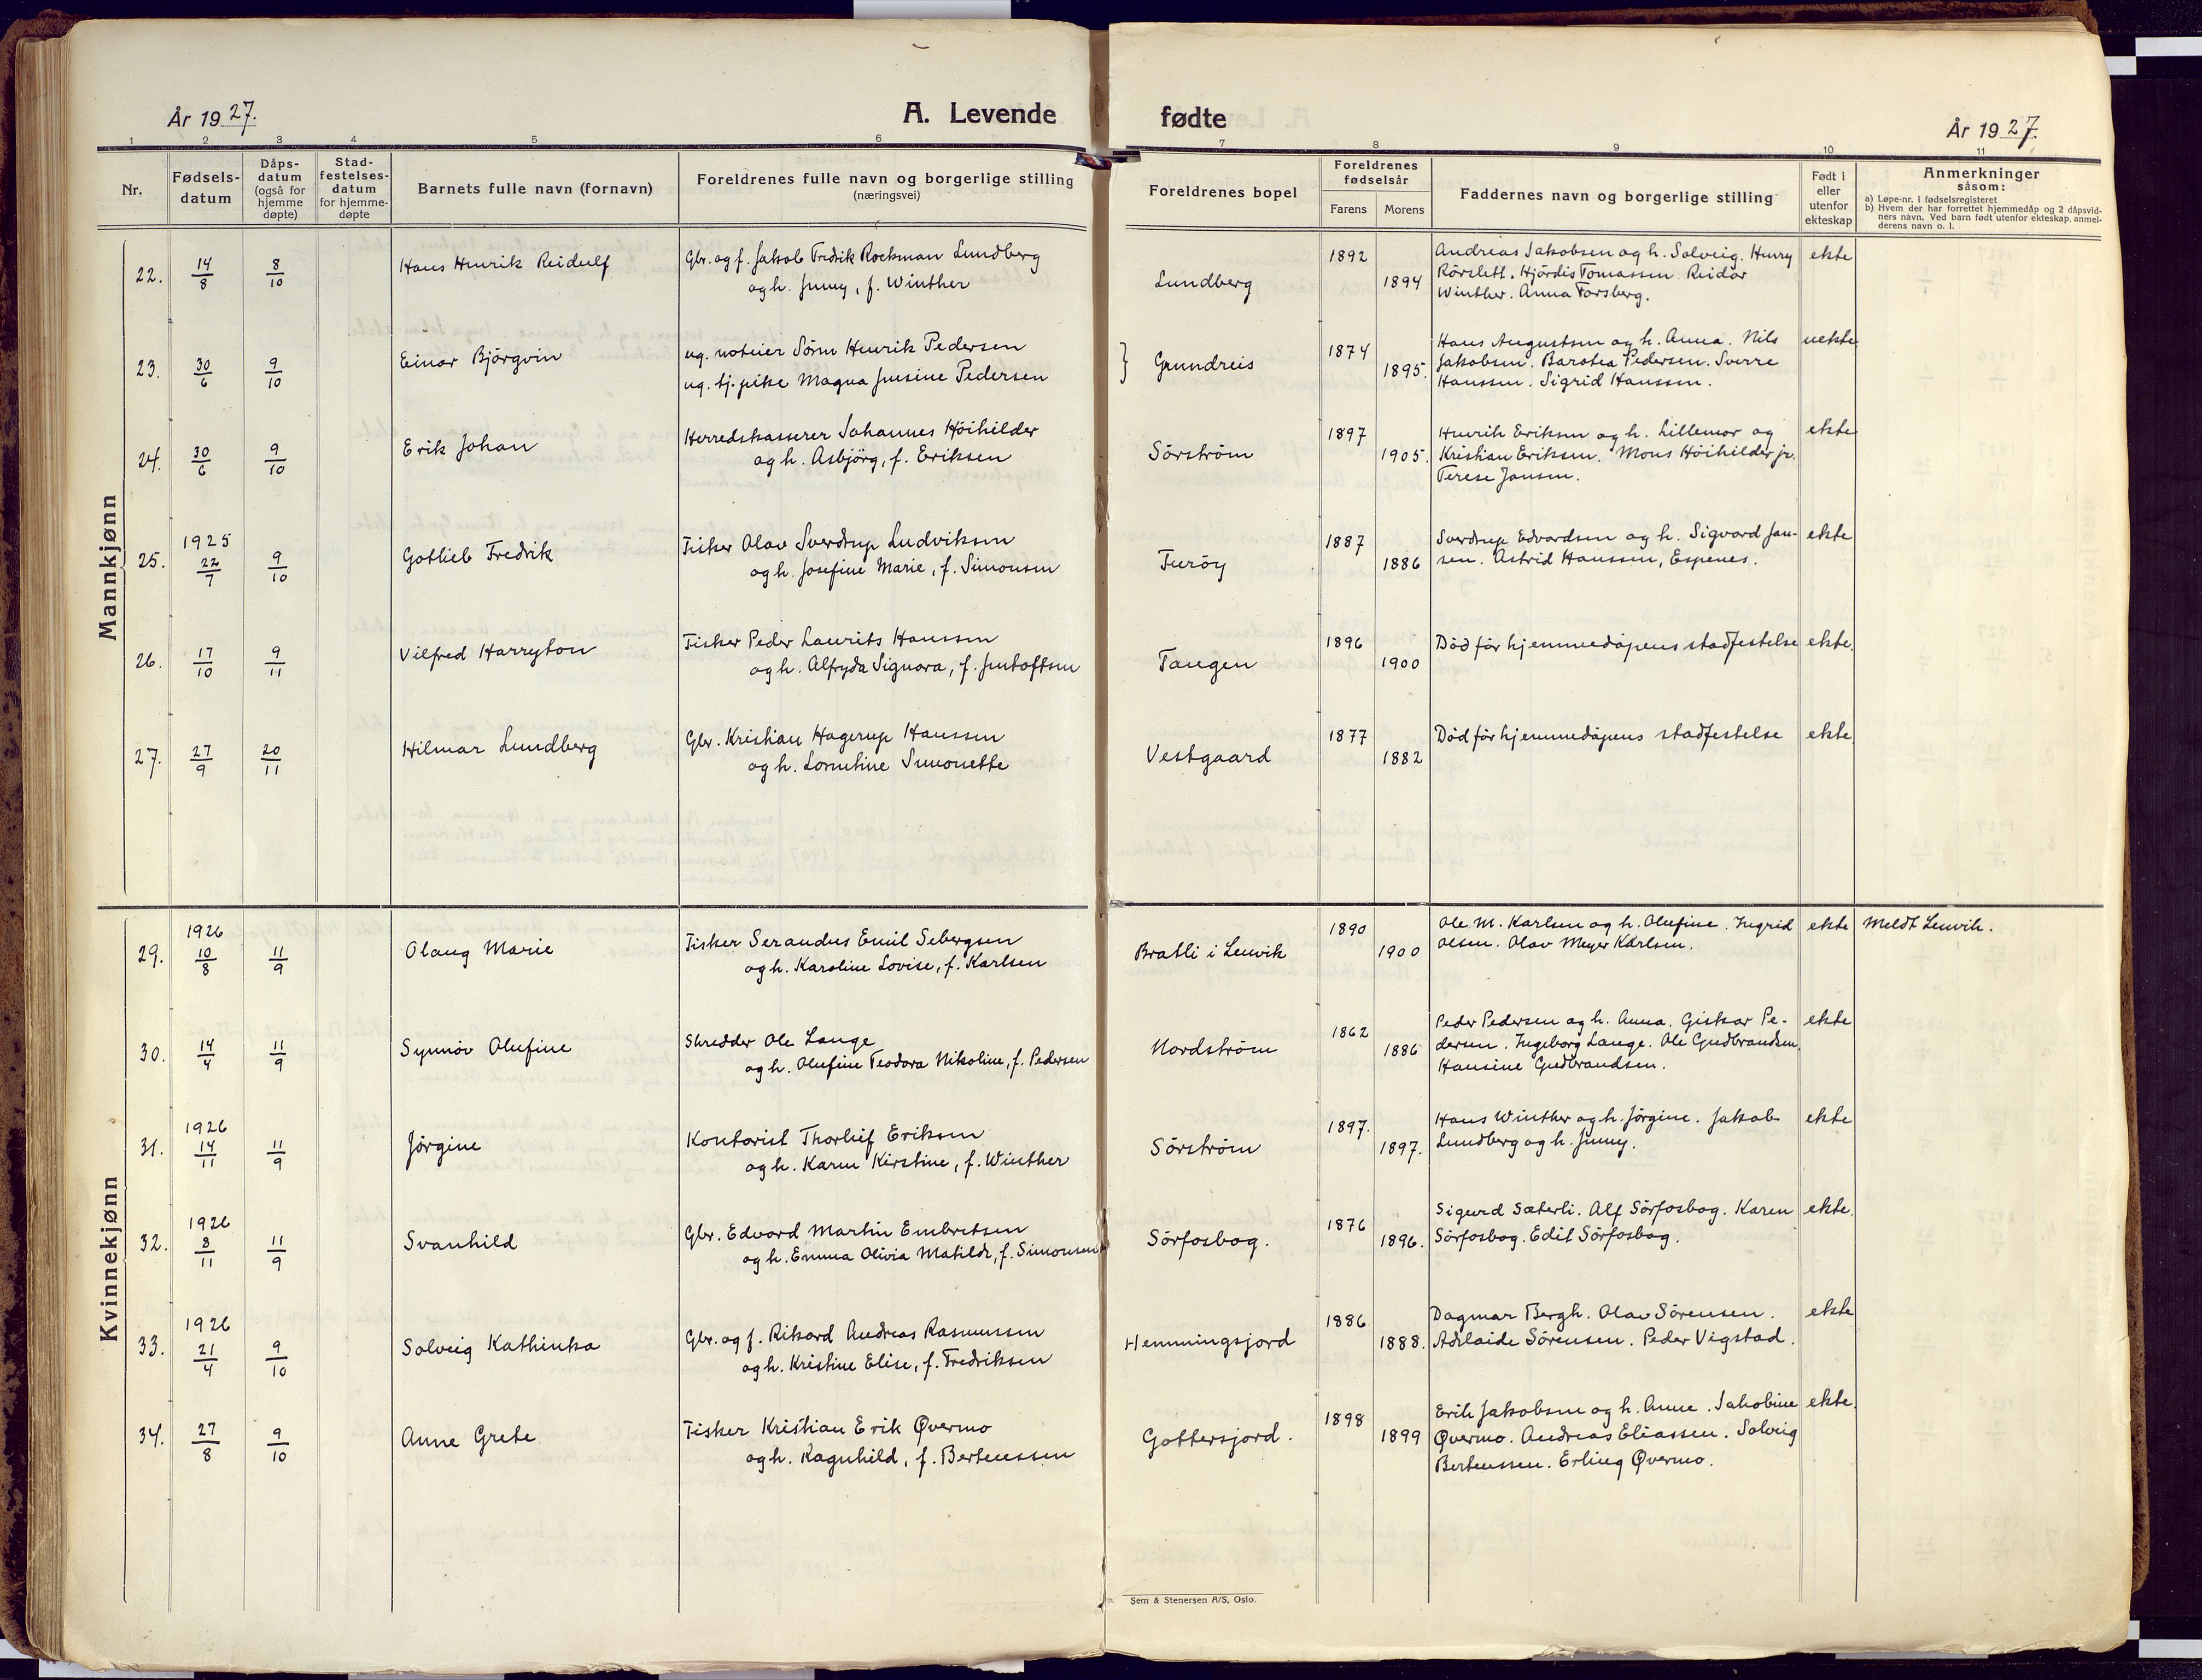 År 1927.
A. Levende
fødte
År 1927.
1 2 3 4 5 6 7 8 9 10 11
Nr.
Fødsels-
datum
Dåps-
datum
(også for
hjemme
døpte)
Stad-
festelses-
datum
for hjemme-
døpte
Barnets fulle navn (fornavn)
Foreldrenes fulle navn og borgerlige stilling
(næringsvei)
Foreldrenes bopel
Foreldrenes
fødselsår
Farens Morens
Faddernes navn og borgerlige stilling
Født i
eller
utenfor
ekteskap
Anmerkninger
såsom:
a) Løpe-nr. i fødselsregisteret
b) Hvem der har forrettet hjemmedåp og 2 dåpsvid-
ners navn. Ved barn født utenfor ekteskap, anmel-
derens navn o. l.
Mannkjønn
22. 14/8 8/10 Hans Henrik Reidulf
Gbr. og f. Jakob Fredrik Rockman Lundberg
og h. Jenny, f. Winther
Lundberg 1892 1894
Andreas Jakobsen og h. Solveig. Henry
Rörslett. Hjördis Tomassen. Reidar
Winther. Anna Forsberg.
ekte
23. 30/6 9/10 Einar Björgvin
ug. noteier Sören Henrik Pedersen
ug. tj. pike Magna Jensine Pedersen
} Grundreis 1874 1895.
Hans Augustsen og h. Anna. Nils
Jakobsen. Barotea Pedersen. Sverre
Hanssen. Sigrid Hanssen.
uekte
24. 30/6 9/10 Erik Johan
Herredskasserer Johannes Höihilder
og h. Asbjörg, f. Eriksen
Sörström 1897 1905.
Henrik Eriksen og h. Lillemor og
Kristian Eriksen. Mons Höihilder jr.
Terese Jansen.
ekte
25. 1925 22/7 9/10 Gotlieb Fredrik
Fisker Olav Sverdrup Ludviksen
og h. Josefine Marie, f. Simonsen
Furöy 1887 1886
Sverdrup Edvardsen og h. Sigvard Jan-
sen. Astrid Hanssen, Espenes.
ekte
26. 17/10 9/11 Vilfred Harryton
Fisker Peder Laurits Hanssen
og h. Alfryda Signora, f. Jentoftsen
Tangen 1896 1900
Död för hjemmedåpens stadfestelse
ekte.
27. 27/9 20/11 Hilmar Lundberg
Gbr. Kristian Hagerup Hanssen
og h. Lorentine Simonette
Vestgaard 1877 1882
Död för hjemmedåpens stadfestelse
ekte.
Kvinnekjønn
29. 1926 10/8 11/9 Olaug Marie
Fisker Serandus Emil Sebergsen
og h. Karoline Lovise, f. Karlsen
Bratli i Lenvik 1890 1900
Ole M. Karlsen og h. Olufine. Ingrid
Olsen. Olav Meyer Karlsen.
ekte Meldt Lenvik.
30. 14/4 11/9 Synnöv Olufine
Skredder Ole Lange
og h. Olufine Teodora Nikoline, f. Pedersen
Nordström 1862 1886
Peder Pedersen og h. Anna. Giskar Pe-
dersen. Ingeborg Lange. Ole Gudbrandsen.
Hansine Gudbrandsen.
ekte
31. 1926 14/11 11/9 Jörgine
Kontorist Thorleif Eriksen
og h. Karen Kirstine, f. Winther
Sörström 1897. 1897.
Hans Winther og h. Jörgine. Jakob
Lundberg og h. Jenny.
ekte
32. 1926 8/11 11/9 Svanhild
Gbr. Edvard Martin Embretsen
og h. Emma Olivia Matilde, f. Simonsen
Sörfosbog. 1876 1896.
Sigurd Sæterli. Alf Sörfosbog. Karen
Sörfosbog. Edit Sörfosbog.
ekte.
33. 1926 21/4 9/10 Solveig Kathinka
Gbr. og f. Rikard Andreas Rasmussen
og h. Kristine Elise, f. Fredriksen
Hemmingsjord 1886 1888.
Dagmar Bergh. Olav Sörensen.
Adelaide Sörensen. Peder Vigstad.
ekte
34. 27/8 9/10 Anne Grete
Fisker Kristian Erik Øvermo
og h. Ragnhild, f. Berteussen
Gottersjord. 1898 1899
Erik Jakobsen og h. Anne. Jakobine
Øvermo. Andreas Eliassen. Solveig
Berteussen. Erling Øvermo.
ekte.
Sem & Stenersen A/S, Oslo.